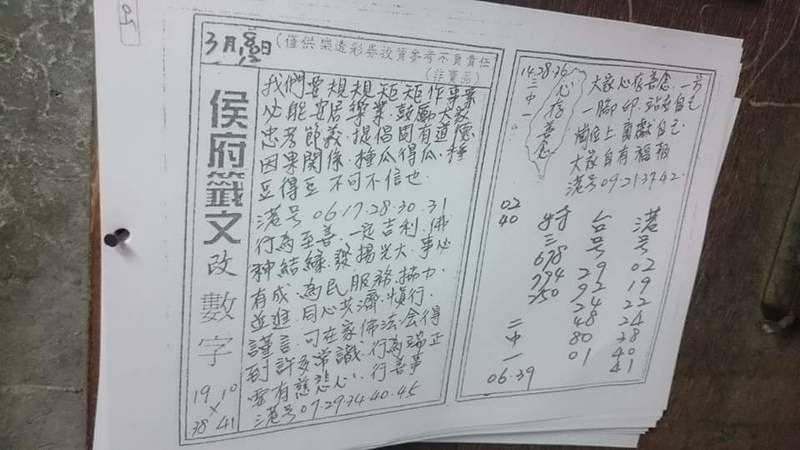 3月18日
(僅供樂透彩券投資參考不負責任
(非賣品)
侯府籤文
改數字
19 10
×
38 41
我們要規規矩矩作事業
必能安居樂業.鼓勵大家
忠孝節義.提倡固有道德.
因果關係.種瓜得瓜.種
豆得豆 不可不信也.
港号 06.17.28.30.31
行為至善.一定吉利.佛
神結緣.發揚光大.事必
有成.為民服務.協力.
並進.同心共濟.慎行.
謹言.可在家佛法.会得
到許多常識.行為端正
要有慈悲心.行善事
港号07.29.34.40.45
14.28.36
三中一
心存善念
大家心存善念.一步
一腳印.站在自己
崗位上貢獻自己
大家自有福報
港号09.21.37.42.
02
40
特三
678
794
250
二中一
06.39
台号
29
92
24
48
80
01
港号
02
19
22
24
38
40
41